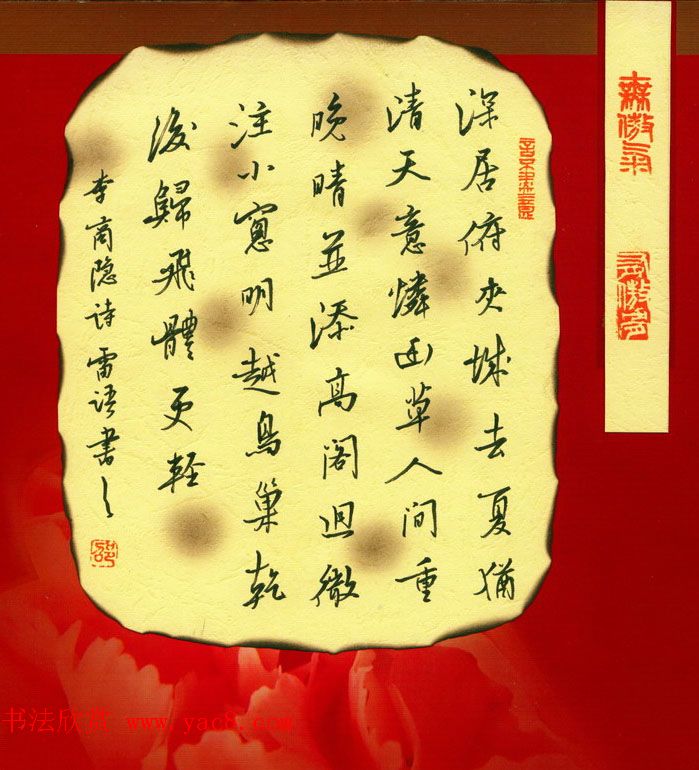 深居俯夾城去夏猶
清天意憐幽草人间重
晚晴並添高閣迥微
注小窓明越鳥巢乾
後歸飛體更輕
李商隐诗雷语書之
無傲氣
有傲骨
书法欣赏 www.yac8.com